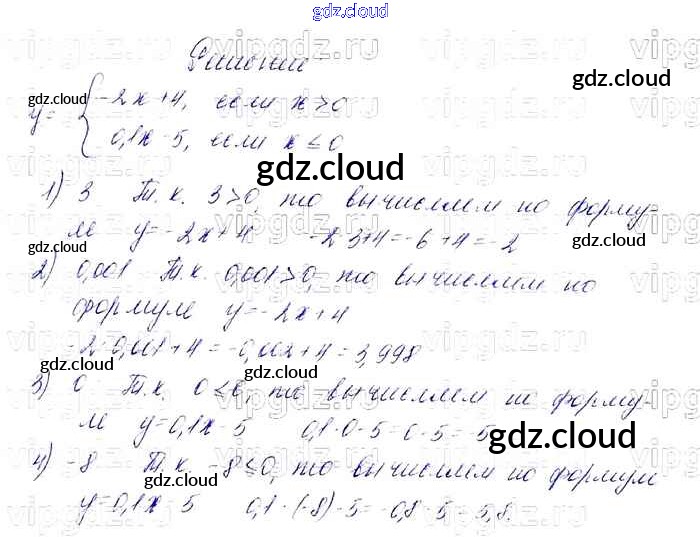 gdz.cloud
Решение
gdz.cloud
y = { -2x+4, если x>0
0,1x-5, если x≤0
gdz.cloud
gdz.cloud
1) 3 Т.к. 3>0, то вычисляем по форму-
ле y=-2x+4 -2·3+4=-6+4=-2
gdz.cloud
gdz.cloud
2) 0,001 Т.к. 0,001>0, то вычисляем по
формуле y=-2x+4
-2·0,001+4=-0,002+4=3,998
gdz.cloud
gdz.cloud
3) 0 Т.к. 0≤0, то вычисляем по форму-
ле y=0,1x-5 0,1·0-5=0-5=-5
gdz.cloud
4) -8 Т.к. -8≤0, то вычисляем по формуле
gdz.cloud
y=0,1x-5 0,1·(-8)-5=-0,8-5=-5,8.
gdz.cloud
vipgdz.ru